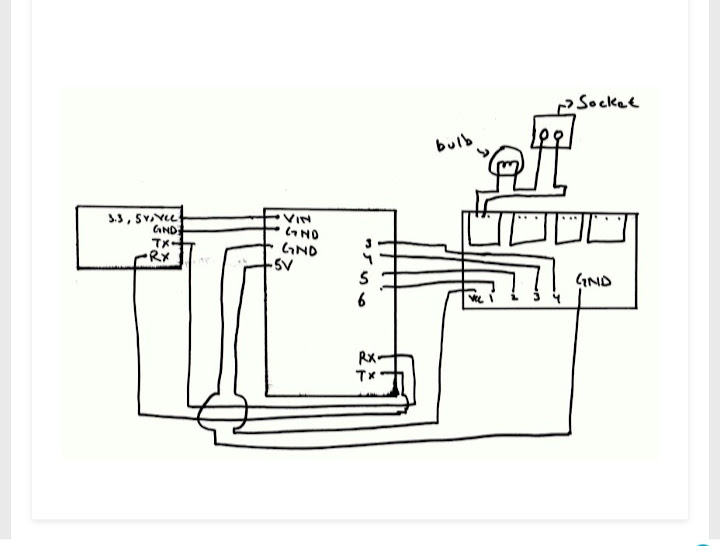 Socket
bulb
3.3, 5V, VCC
GND
TX
RX
VIN
GND
GND
5V
3
4
5
6
RX
TX
VCC 1 2 3 4
GND